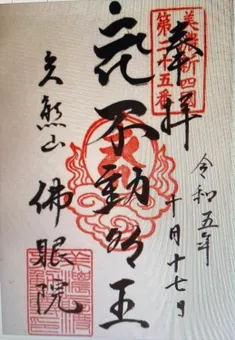 奉拝
美濃新四国
第二十五番
令和五年
十月十七日
不動明王
久熊山
佛眼院